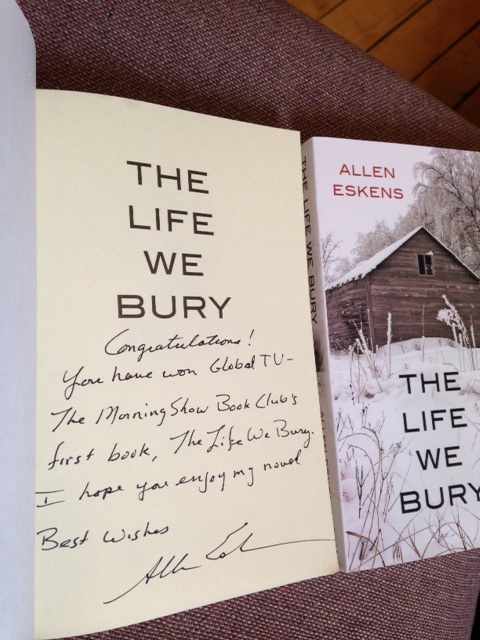 THE
LIFE
WE
BURY
Congratulations!
You have won Global TV-
The Morning Show Book Club's
first book, The Life We Bury.
I hope you enjoy my novel
Best Wishes
Allen Eskens
THE LIFE WE BURY
ALLEN
ESKENS
THE
LIFE
WE
BURY